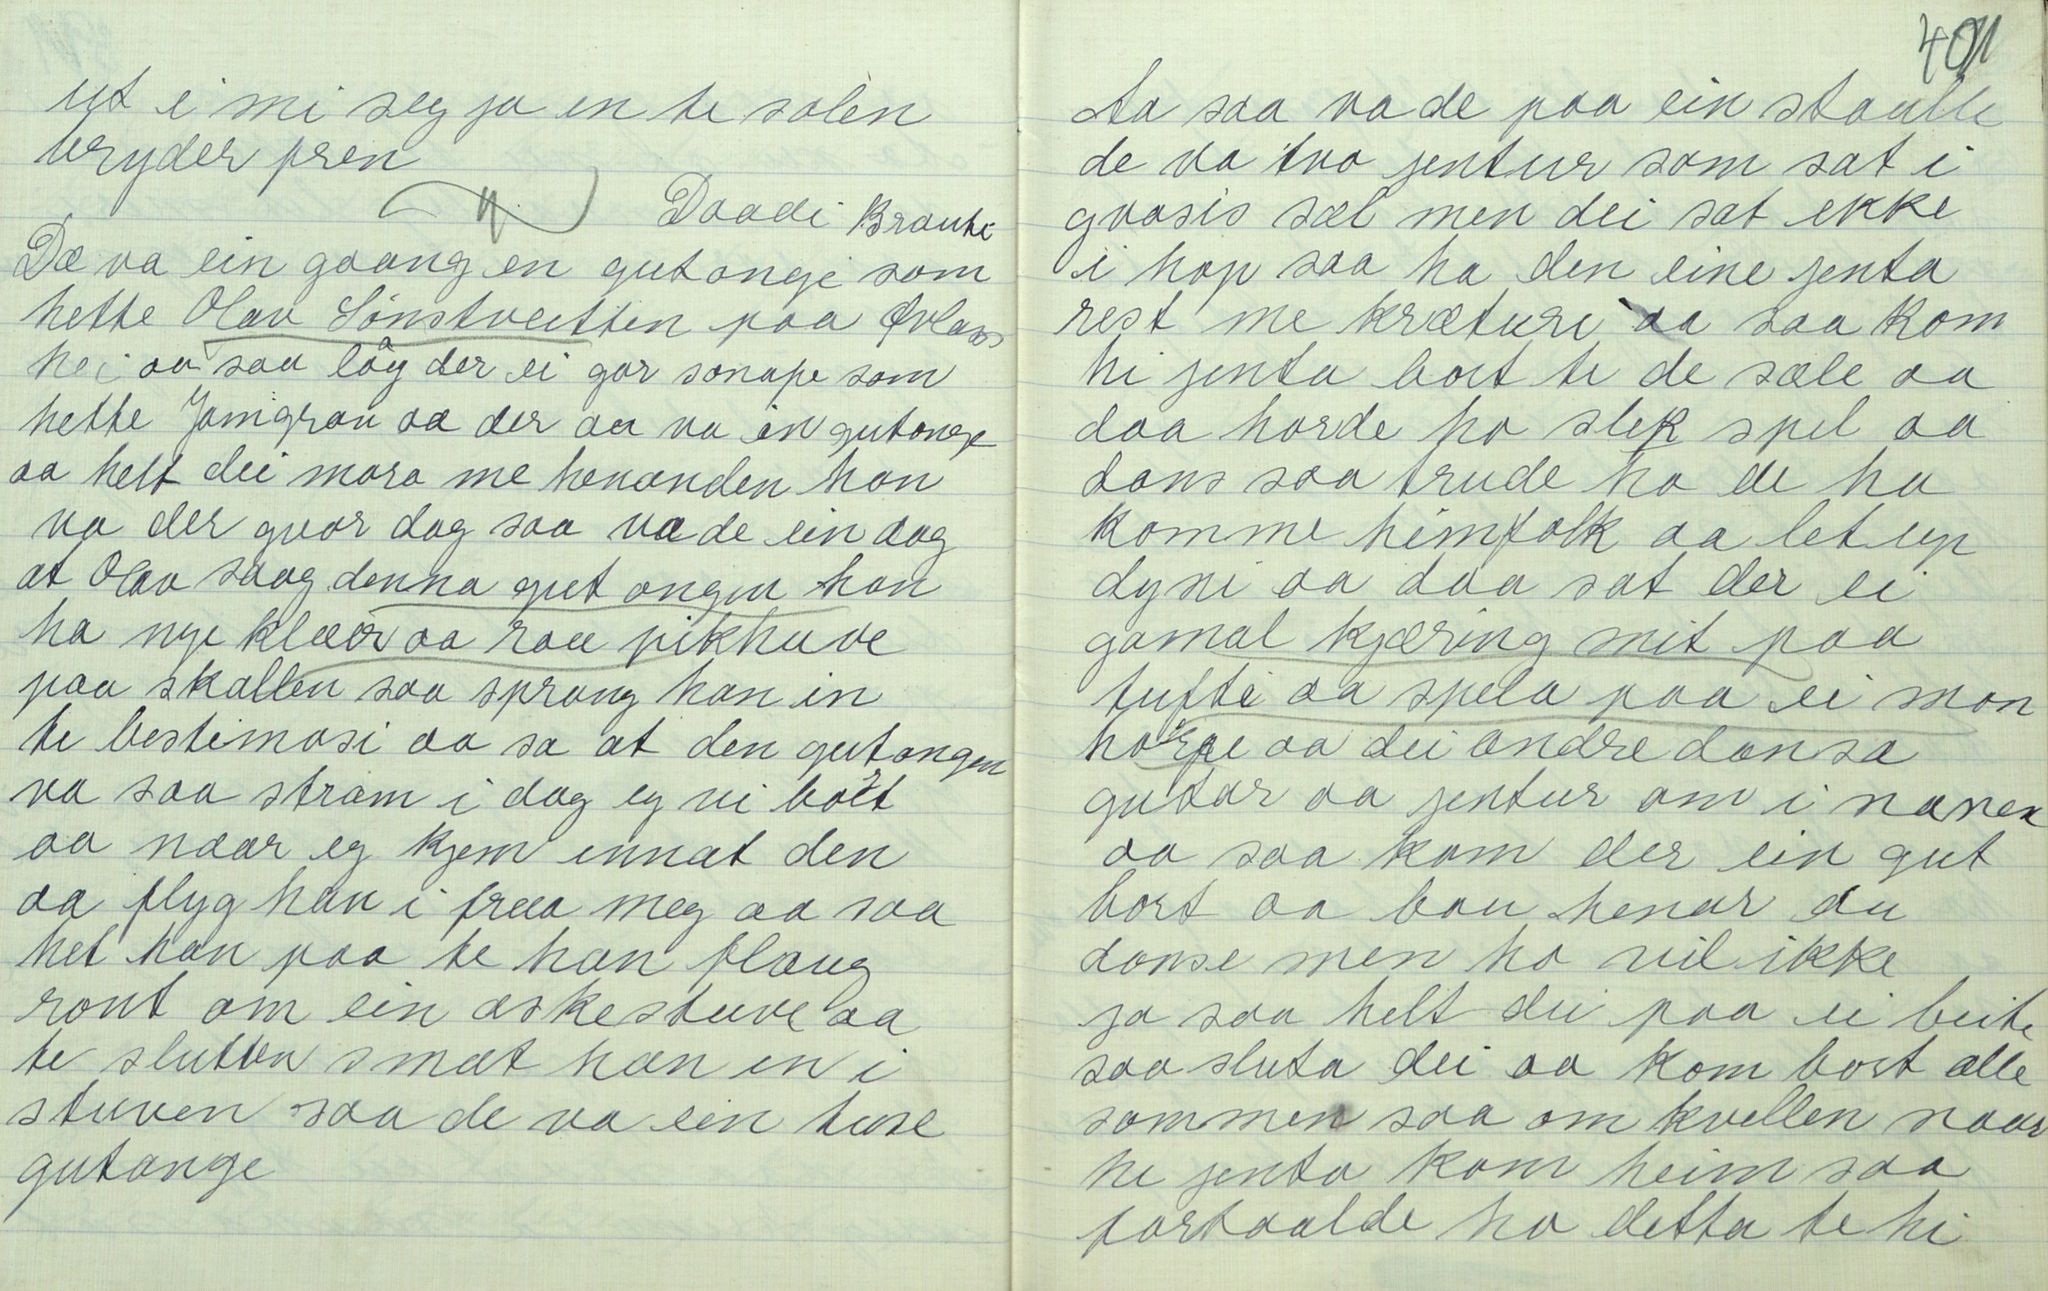 ut i mi seg ja en te solen
bryder fren
Daadi Brauti
Dæ va ein gaang en gutonge som
hette Olav Lönstveitten paa Øvlans
hei aa saa låg der ei gar sonafe som
hette Jamgrav aa der aa va en gutonge
aa helt dei moro me henanden han
va der gvor dag saa va de ein dag
at Olav saag denna gut ongen han
ha nye klæer aa rau pikhuve
paa skallen saa sprang han in
te bestimosi aa sa at den gutongen
va saa stram i dag eg vi bort
aa naar eg kjem innat den
aa flyg han i fraa meg aa saa
het han paa te han flaug
ront om ein askestuve aa
te slutten smat han en i
stuven saa de va ein tuse
gutonge
401
Aa saa va de paa ein staulle
de va tvo jentur som sat i
gvasis sæl men dei sat ekke
i hop saa ha den eine jenta
rest me kræturi aa saa kom
hi jenta bort te de sæle aa
daa horde ho slek spel aa
dans saa trude ho de ha
komme heimfolk aa let up
dyni aa daa sat der ei
gamal kjæring mit paa
tufti aa spela paa ei mon
horpe aa dei andre dansa
gutar aa jentur om i nanen
aa saa kom der ein gut
bort aa bau henar du
danse men ho vil ikke
ja saa helt dei paa ei beite
saa sluta dei aa kom bort alle
sommen saa om kvellen naar
hi jenta kom heim saa
fortaalde ho detta te hi